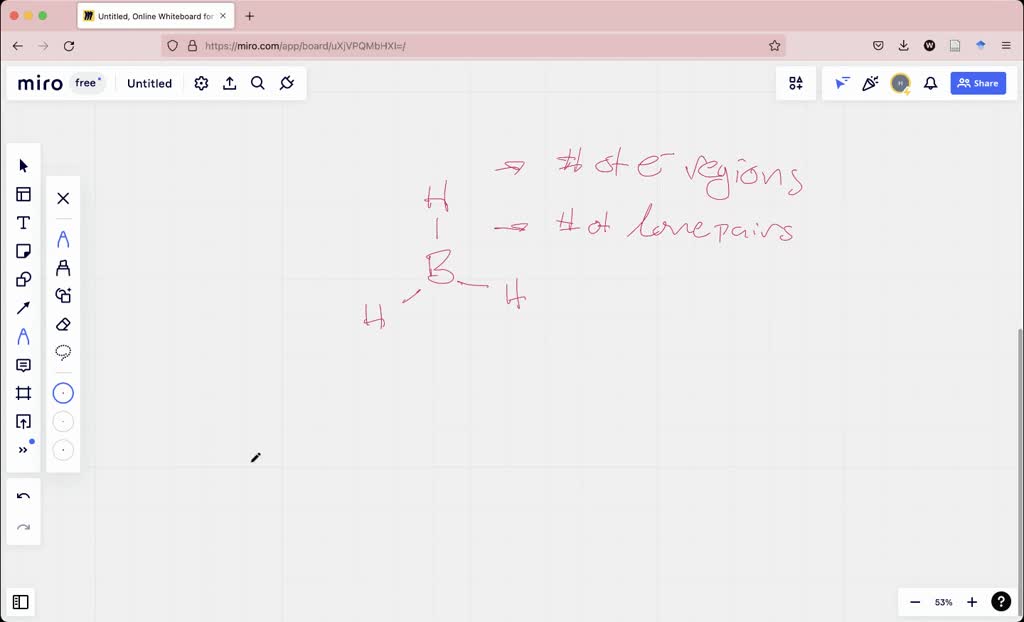 Untitled, Online Whiteboard for
https://miro.com/app/board/uXjVPQMbHXI=/
miro free Untitled
H Share
→ # of e⁻ regions
→ # of lone pairs
H
B
H
H
53%